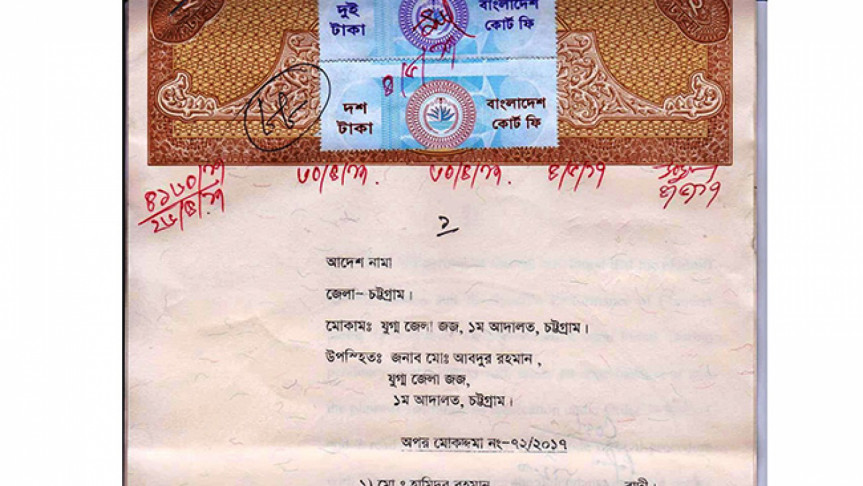 দুই টাকা
বাংলাদেশ কোর্ট ফি
দশ টাকা
বাংলাদেশ কোর্ট ফি
৩০/৪/১৭.
৩০/৪/১৭.
৪/৫/১৭
১
আদেশ নামা
জেলা– চট্টগ্রাম।
মোকামঃ যুগ্ম জেলা জজ, ১ম আদালত, চট্টগ্রাম।
উপস্হিতঃ জনাব মোঃ আবদুর রহমান ,
যুগ্ম জেলা জজ,
১ম আদালত, চট্টগ্রাম।
অপর মোকদ্দমা নং–৭২/২০১৭
১) মো ঃ হামিদুর রহমান
বাদী।